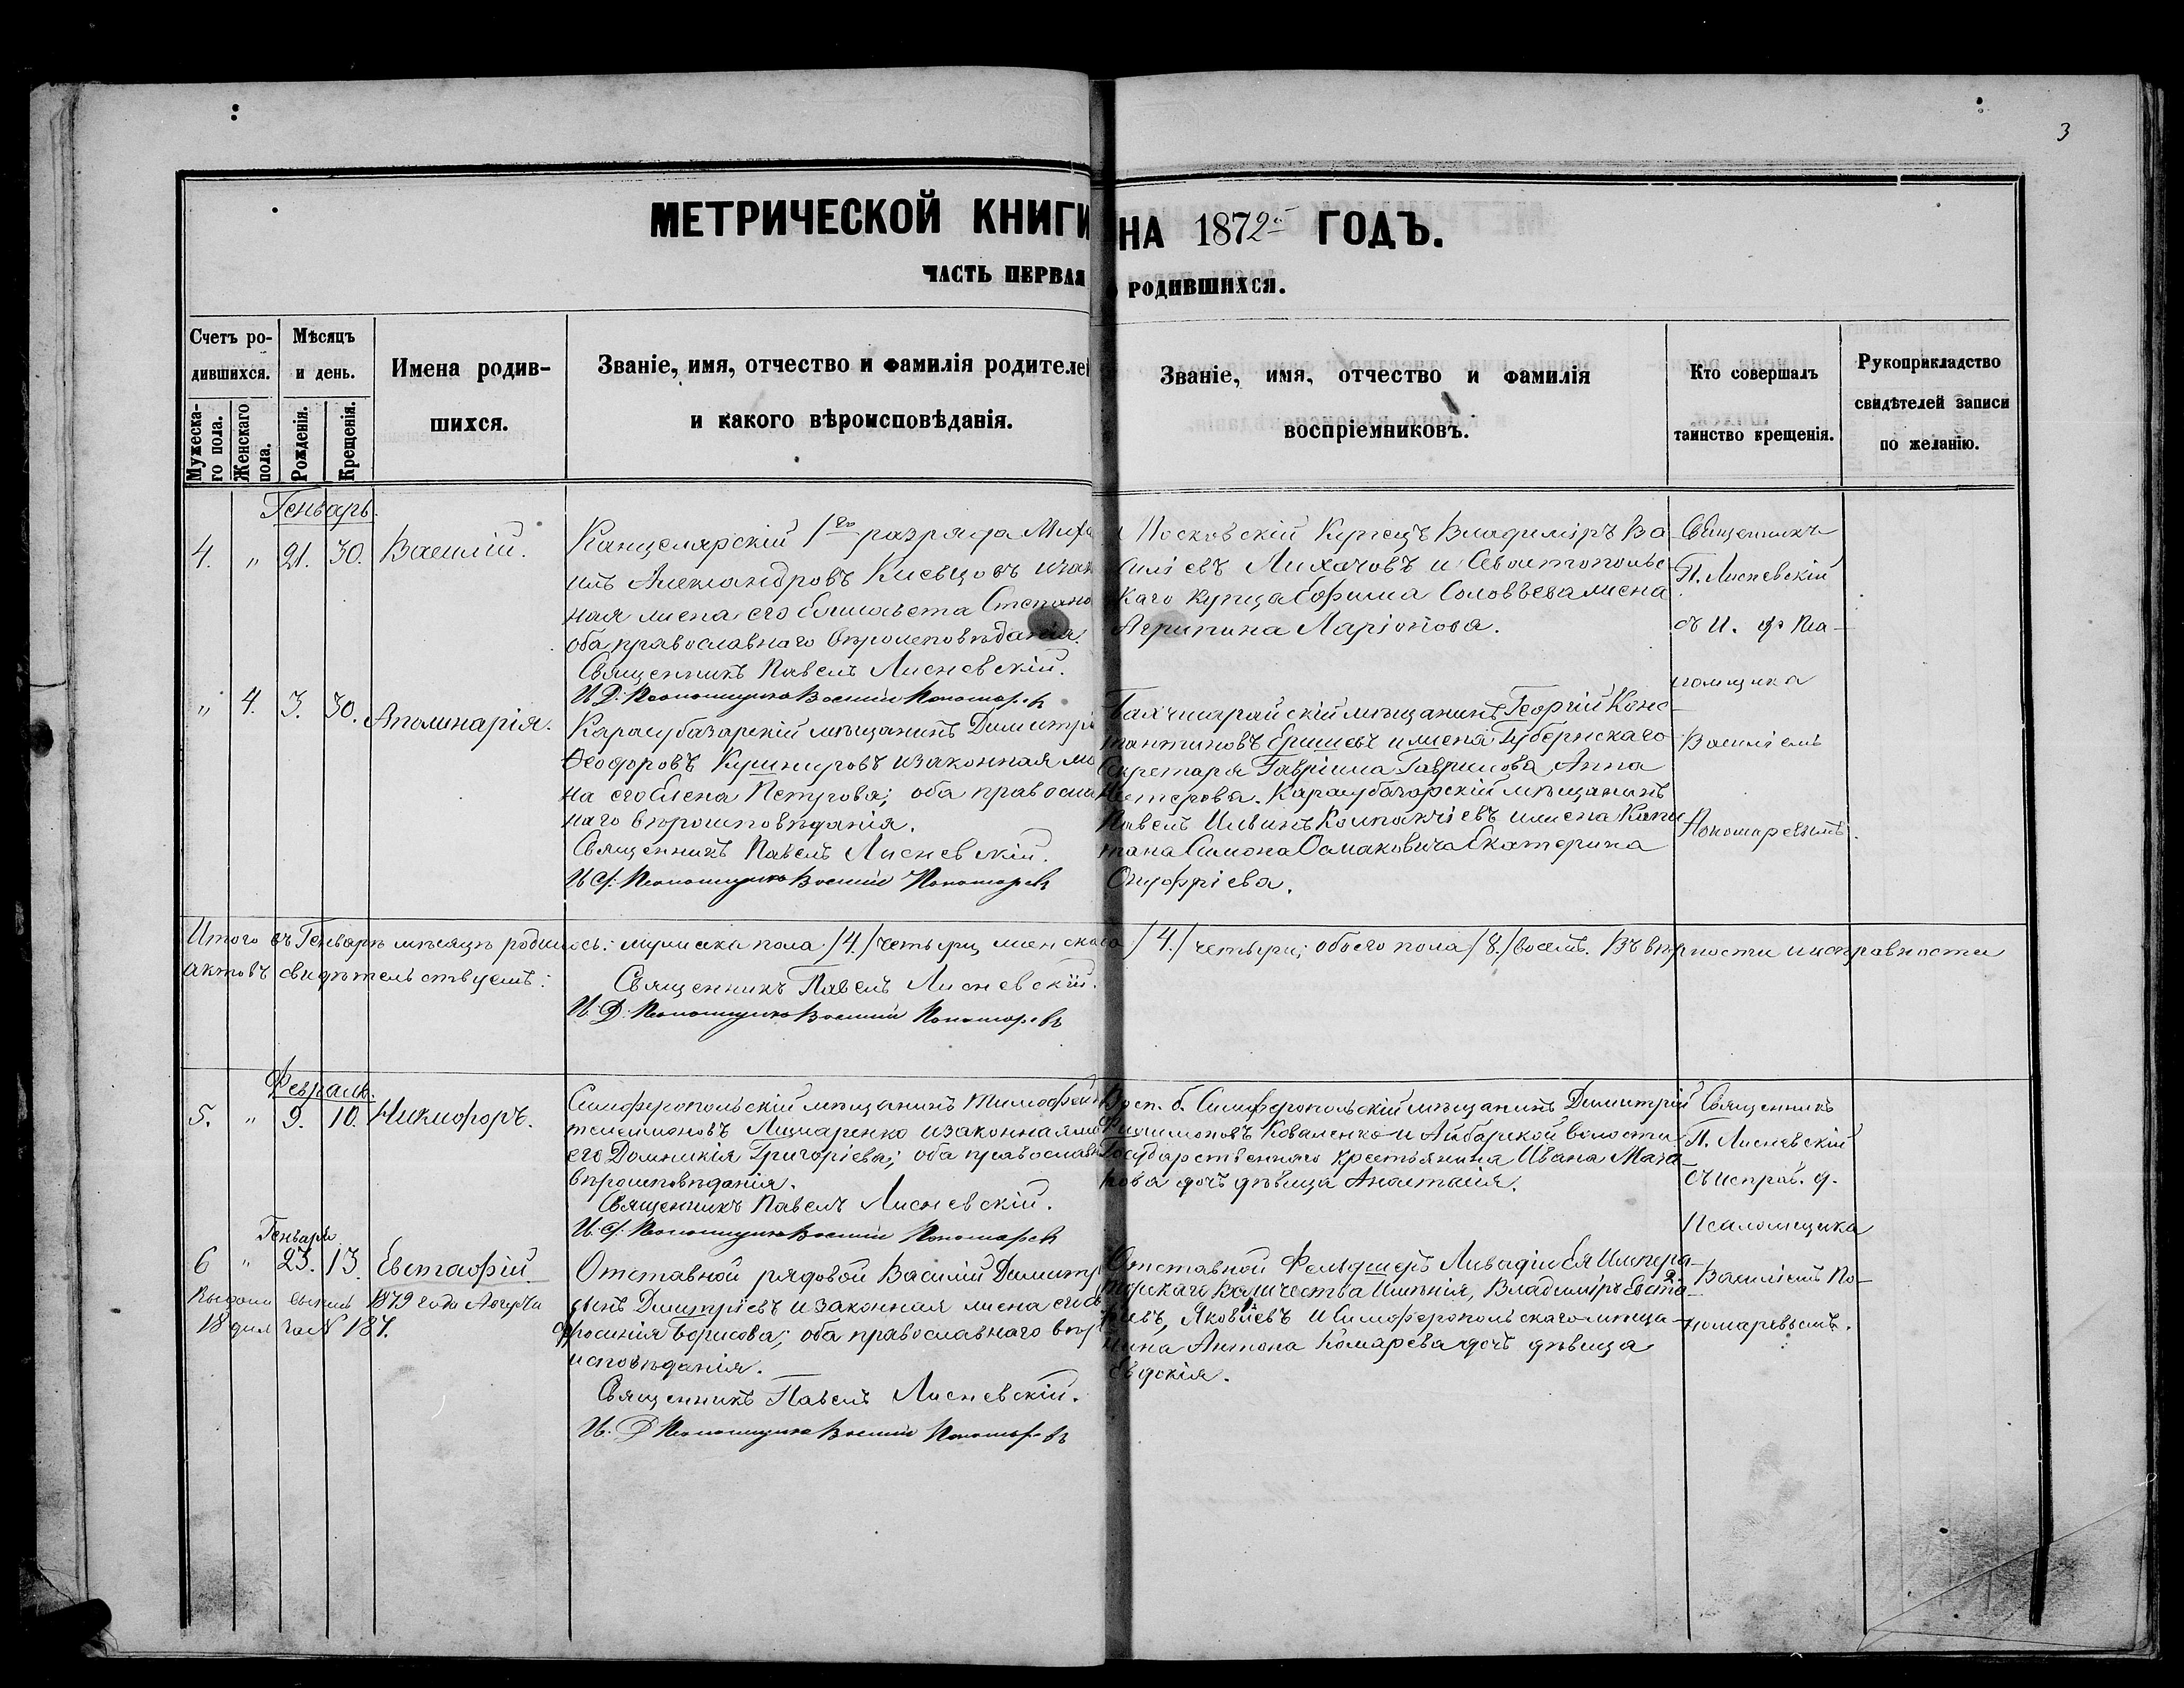 3
МЕТРИЧЕСКОЙ КНИГИ НА 1872й ГОДЪ.
ЧАСТЬ ПЕРВАЯ О РОДИВШИХСЯ.
Счетъ ро-
дившихся.
Мужеска-
го пола.
Женскаго
пола.
Мѣсяцъ
и день.
Рожденія.
Крещенія.
Имена родив-
шихся.
Званіе, имя, отчество и фамилія родителей
и какого вѣроисповѣданія.
Званіе, имя, отчество и фамилія
воспріемниковъ.
Кто совершалъ
таинство крещенія.
Рукоприкладство
свидѣтелей записи
по желанію.
Генварь.
4. " 21. 30. Василій.
Канцелярскій 1го разряда Миха
илъ Александровъ Кисѣвцовъ и зак
ная жена его Елисавета Степано
оба православнаго вѣроисповѣданія.
Священникъ Павелъ Лисневскій.
И. Д. Псаломщика Василій Пономаревъ
Московскій Купецъ Владиміръ Ва
силіевъ Лихачовъ и Севастопольс
каго купца Софима Соловьева жена
Агрипина Ларіонова.
Священникъ
П. Лисневскій
съ И. д. Пса-
ломщика
" 4. 3. 30. Аполинарія.
Карасубазарскій мѣщанинъ Димитрі
Ѳеодоровъ Кушнировъ и законная же
на его Елена Петрова; оба правосла
наго вѣроисповѣданія.
Священникъ Павелъ Лисневскій.
И. д. Псаломщика Василій Пономаревъ
Бахчисарайскій мѣщанинъ Георгій Конс
тантиновъ Еришевъ и жена Губернскаго
Секретаря Гавріила Гаврилова Анна
Нестерова. Карасубазарскій мѣщанинъ
Павелъ Ильинъ Колпакчіевъ и жена Капи
тана Симона Осмаковича Екатерина
Онуфріева.
Василіемъ
Пономаревымъ.
Итого въ Генварѣ мѣсяцѣ родилось: мужеска пола /4./ четыре, женскаго /4./ четыре; обоего пола /8./ восемь. Въ вѣрности и исправности
актовъ свидѣтельствуемъ:
Священникъ Павелъ Лисневскій.
И. Д. Псаломщика Василій Пономаревъ
Февраль.
5. " 9. 10. Никифоръ.
Симферопольскій мѣщанинъ Тимофей
телеимоновъ Лицмаренко и законная же
его Домникія Григоріева; оба православн
вѣроисповѣданія.
Священникъ Павелъ Лисневскій.
И. д. Псаломщика Василій Пономаревъ
Восп. б. Симферопольскій мѣщанинъ Димитрій
Филимоновъ Коваленко и Айбарской волости
Государственнаго крестьянина Ивана Мача
кова дочь дѣвица Анастасія.
Священникъ
П. Лисневскій
съ исправ. д.
Псаломщика
Генварь.
6 " 23. 13. Евстафій.
1879 года Августа
18 дня за № 187.
Отставной рядовой Василій Димитр
сынъ Димитріевъ и законная жена его Ев
фросинія Борисова; оба православнаго вѣр
исповѣданія.
Священникъ Павелъ Лисневскій.
И. Д Псаломщика Василій Пономаревъ
Отставной Фельдшеръ Ливадіи Ея Импера-
торскаго Величества Имѣнія, Владиміръ Евста
фіевъ, Яковлевъ и Симферопольскаго мѣща-
нина Антона Комарева дочь дѣвица
Евдокія.
Василіемъ По-
номаревымъ.